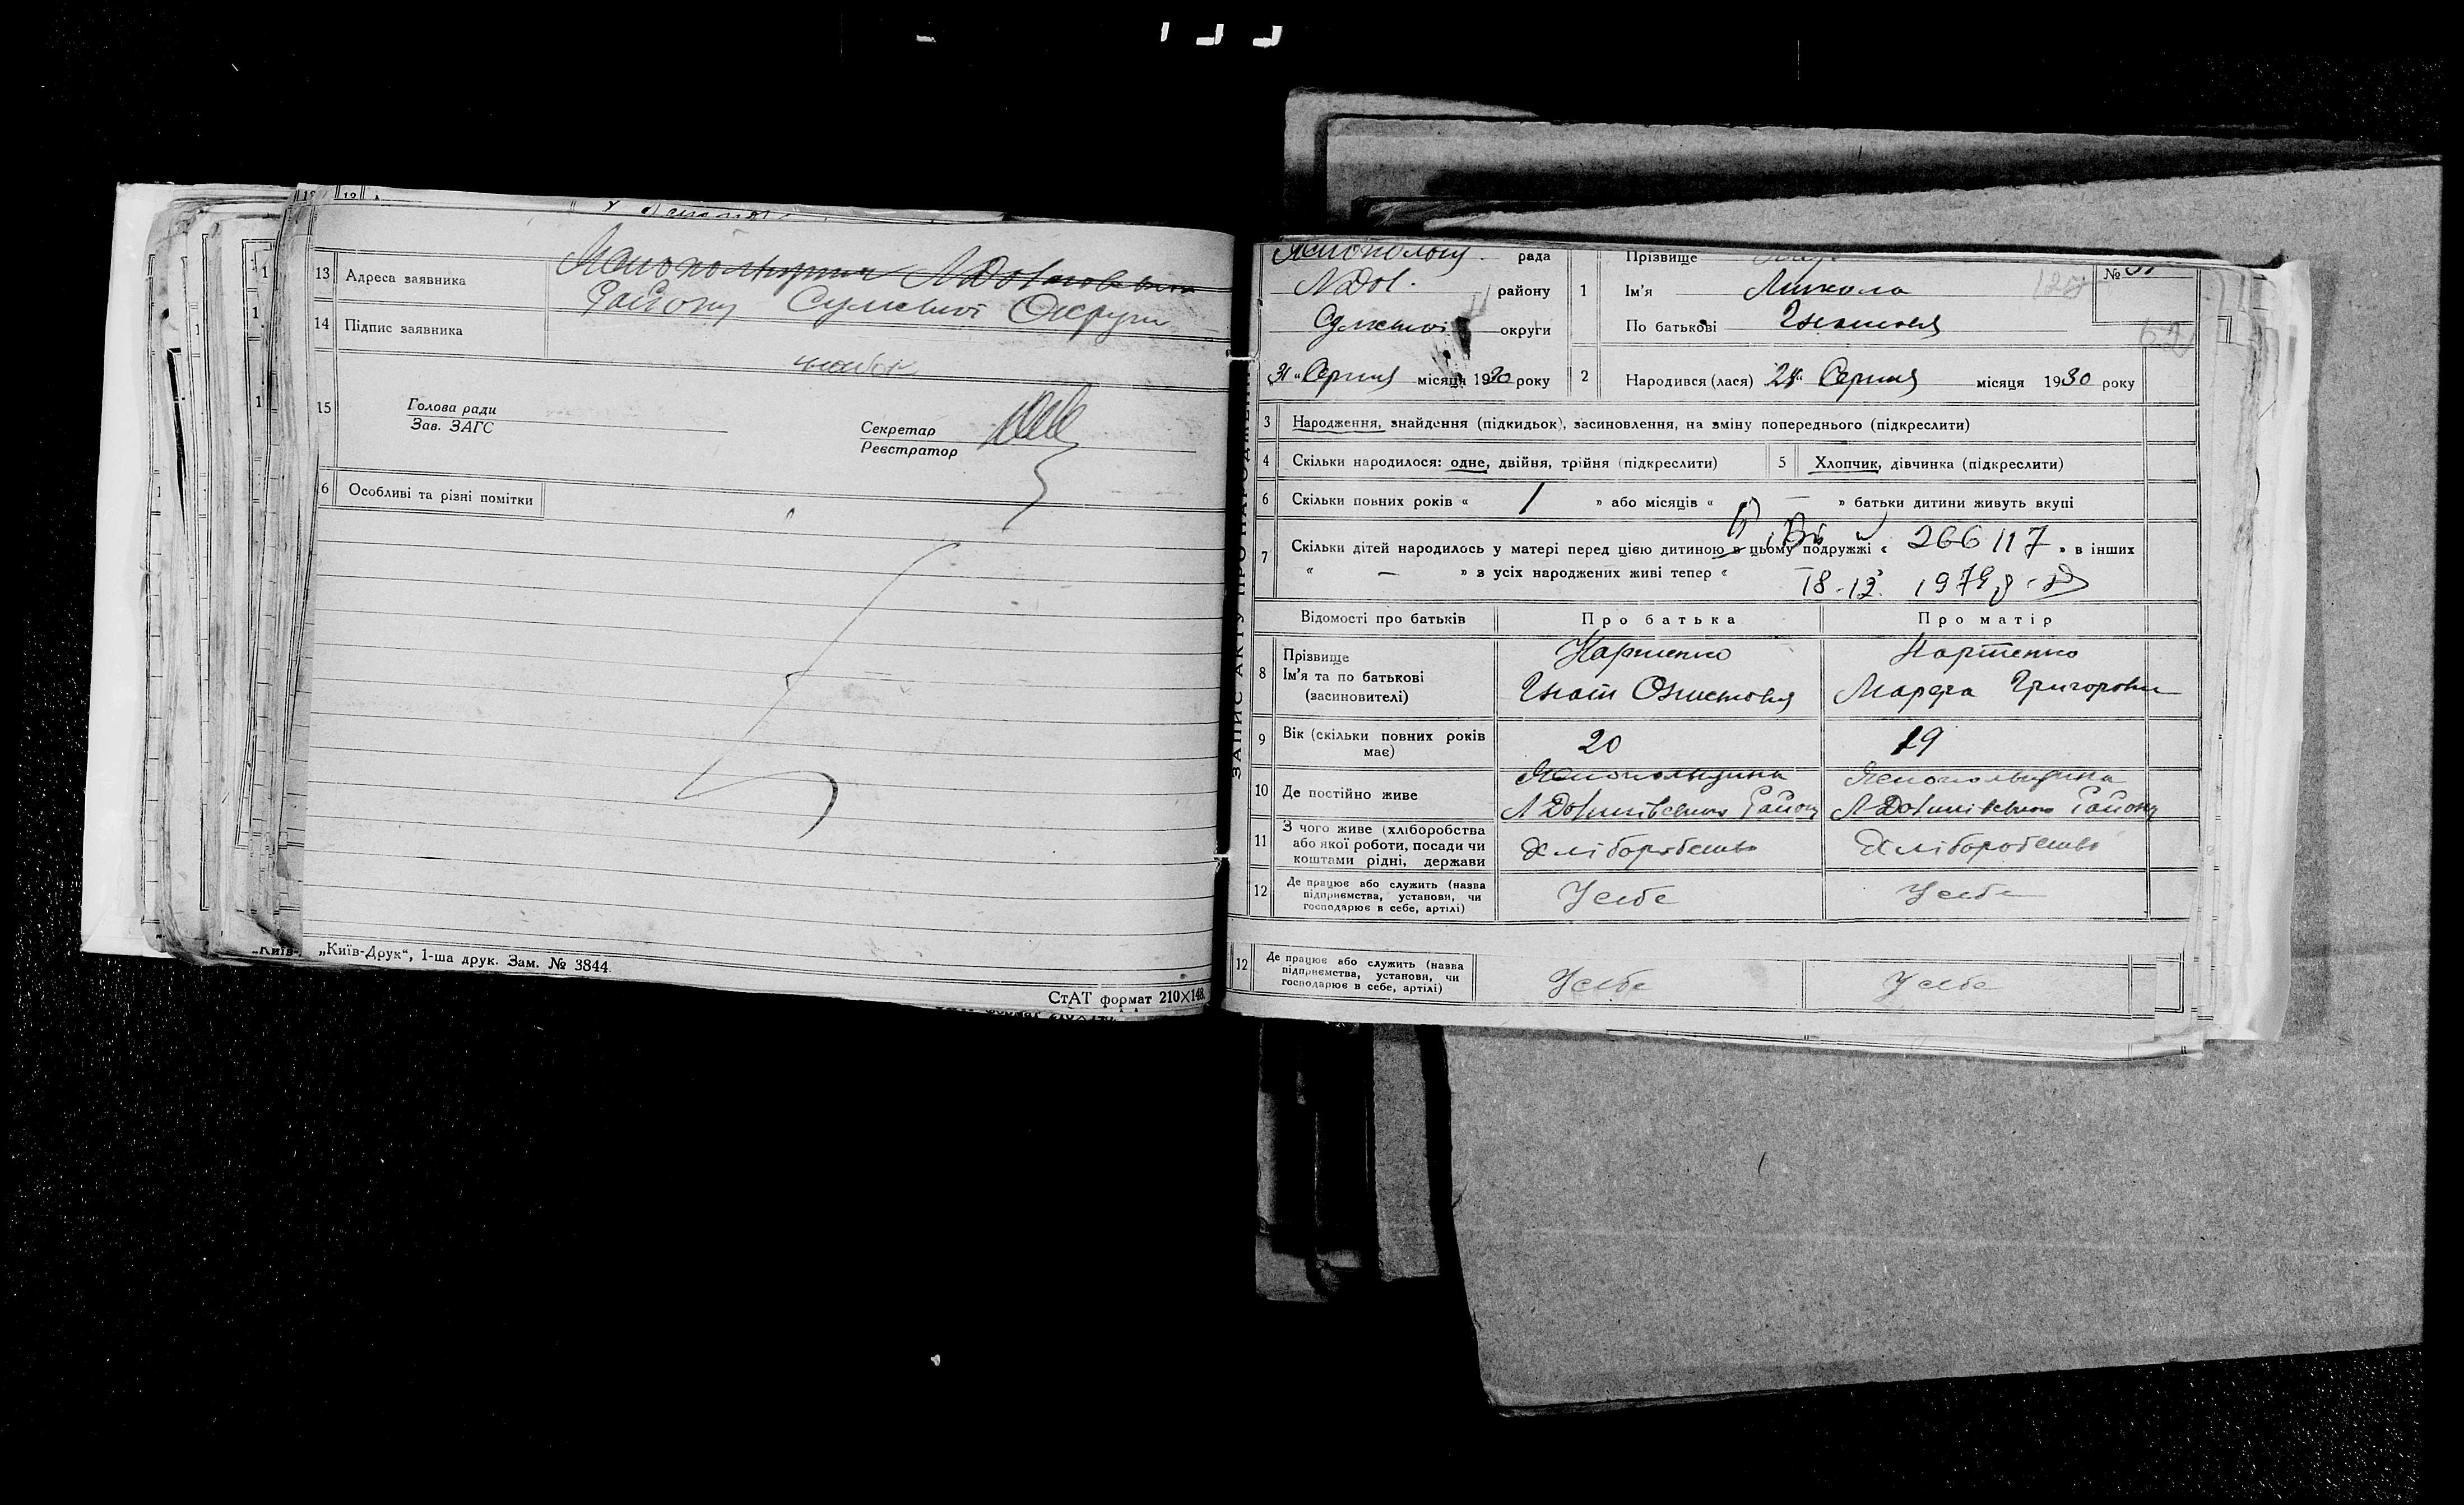 13 Адреса заявника
Району Сумської Округи
14 Підпис заявника
15 Голова ради
Зав. ЗАГС
Секретар
Реєстратор
6 Особливі та різні помітки
„Київ-Друк“, 1-ша друк. Зам. № 3844.
СтАТ формат 210×148.
ЗАПИС АКТУ ПРО НАРОДЖЕННЯ
рада
району
Сумської округи
31 „ Серпня місяця 1930 року
1 Прізвище
Ім'я Микола
По батькові Гнатович
№ 31
2 Народився (лася) 28 „ Серпня місяця 1930 року
3 Народження, знайдення (підкидьок), засиновлення, на зміну попереднього (підкреслити)
4 Скільки народилося: одне, двійня, трійня (підкреслити) 5 Хлопчик, дівчинка (підкреслити)
6 Скільки повних років « 1 » або місяців « — » батьки дитини живуть вкупі
7 Скільки дітей народилось у матері перед цією дитиною в цьому подружжі « 266117 » в інших
« — » з усіх народжених живі тепер «
18-12. 1979 р.
Відомості про батьків Про батька Про матір
8 Прізвище
Ім'я та по батькові
(засиновителі)
Гнат
Марфа Григоровн
9 Вік (скільки повних років має) 20 19
10 Де постійно живе
Яснопольщина Яснопольщина
Району Району
11 З чого живе (хліборобства або якої роботи, посади чи коштами рідні, держави
Хліборобство Хліборобство
12 Де працює або служить (назва підприємства, установи, чи господарює в себе, артілі)
У себе У себе
12 Де працює або служить (назва підприємства, установи, чи господарює в себе, артілі)
У себе У себе